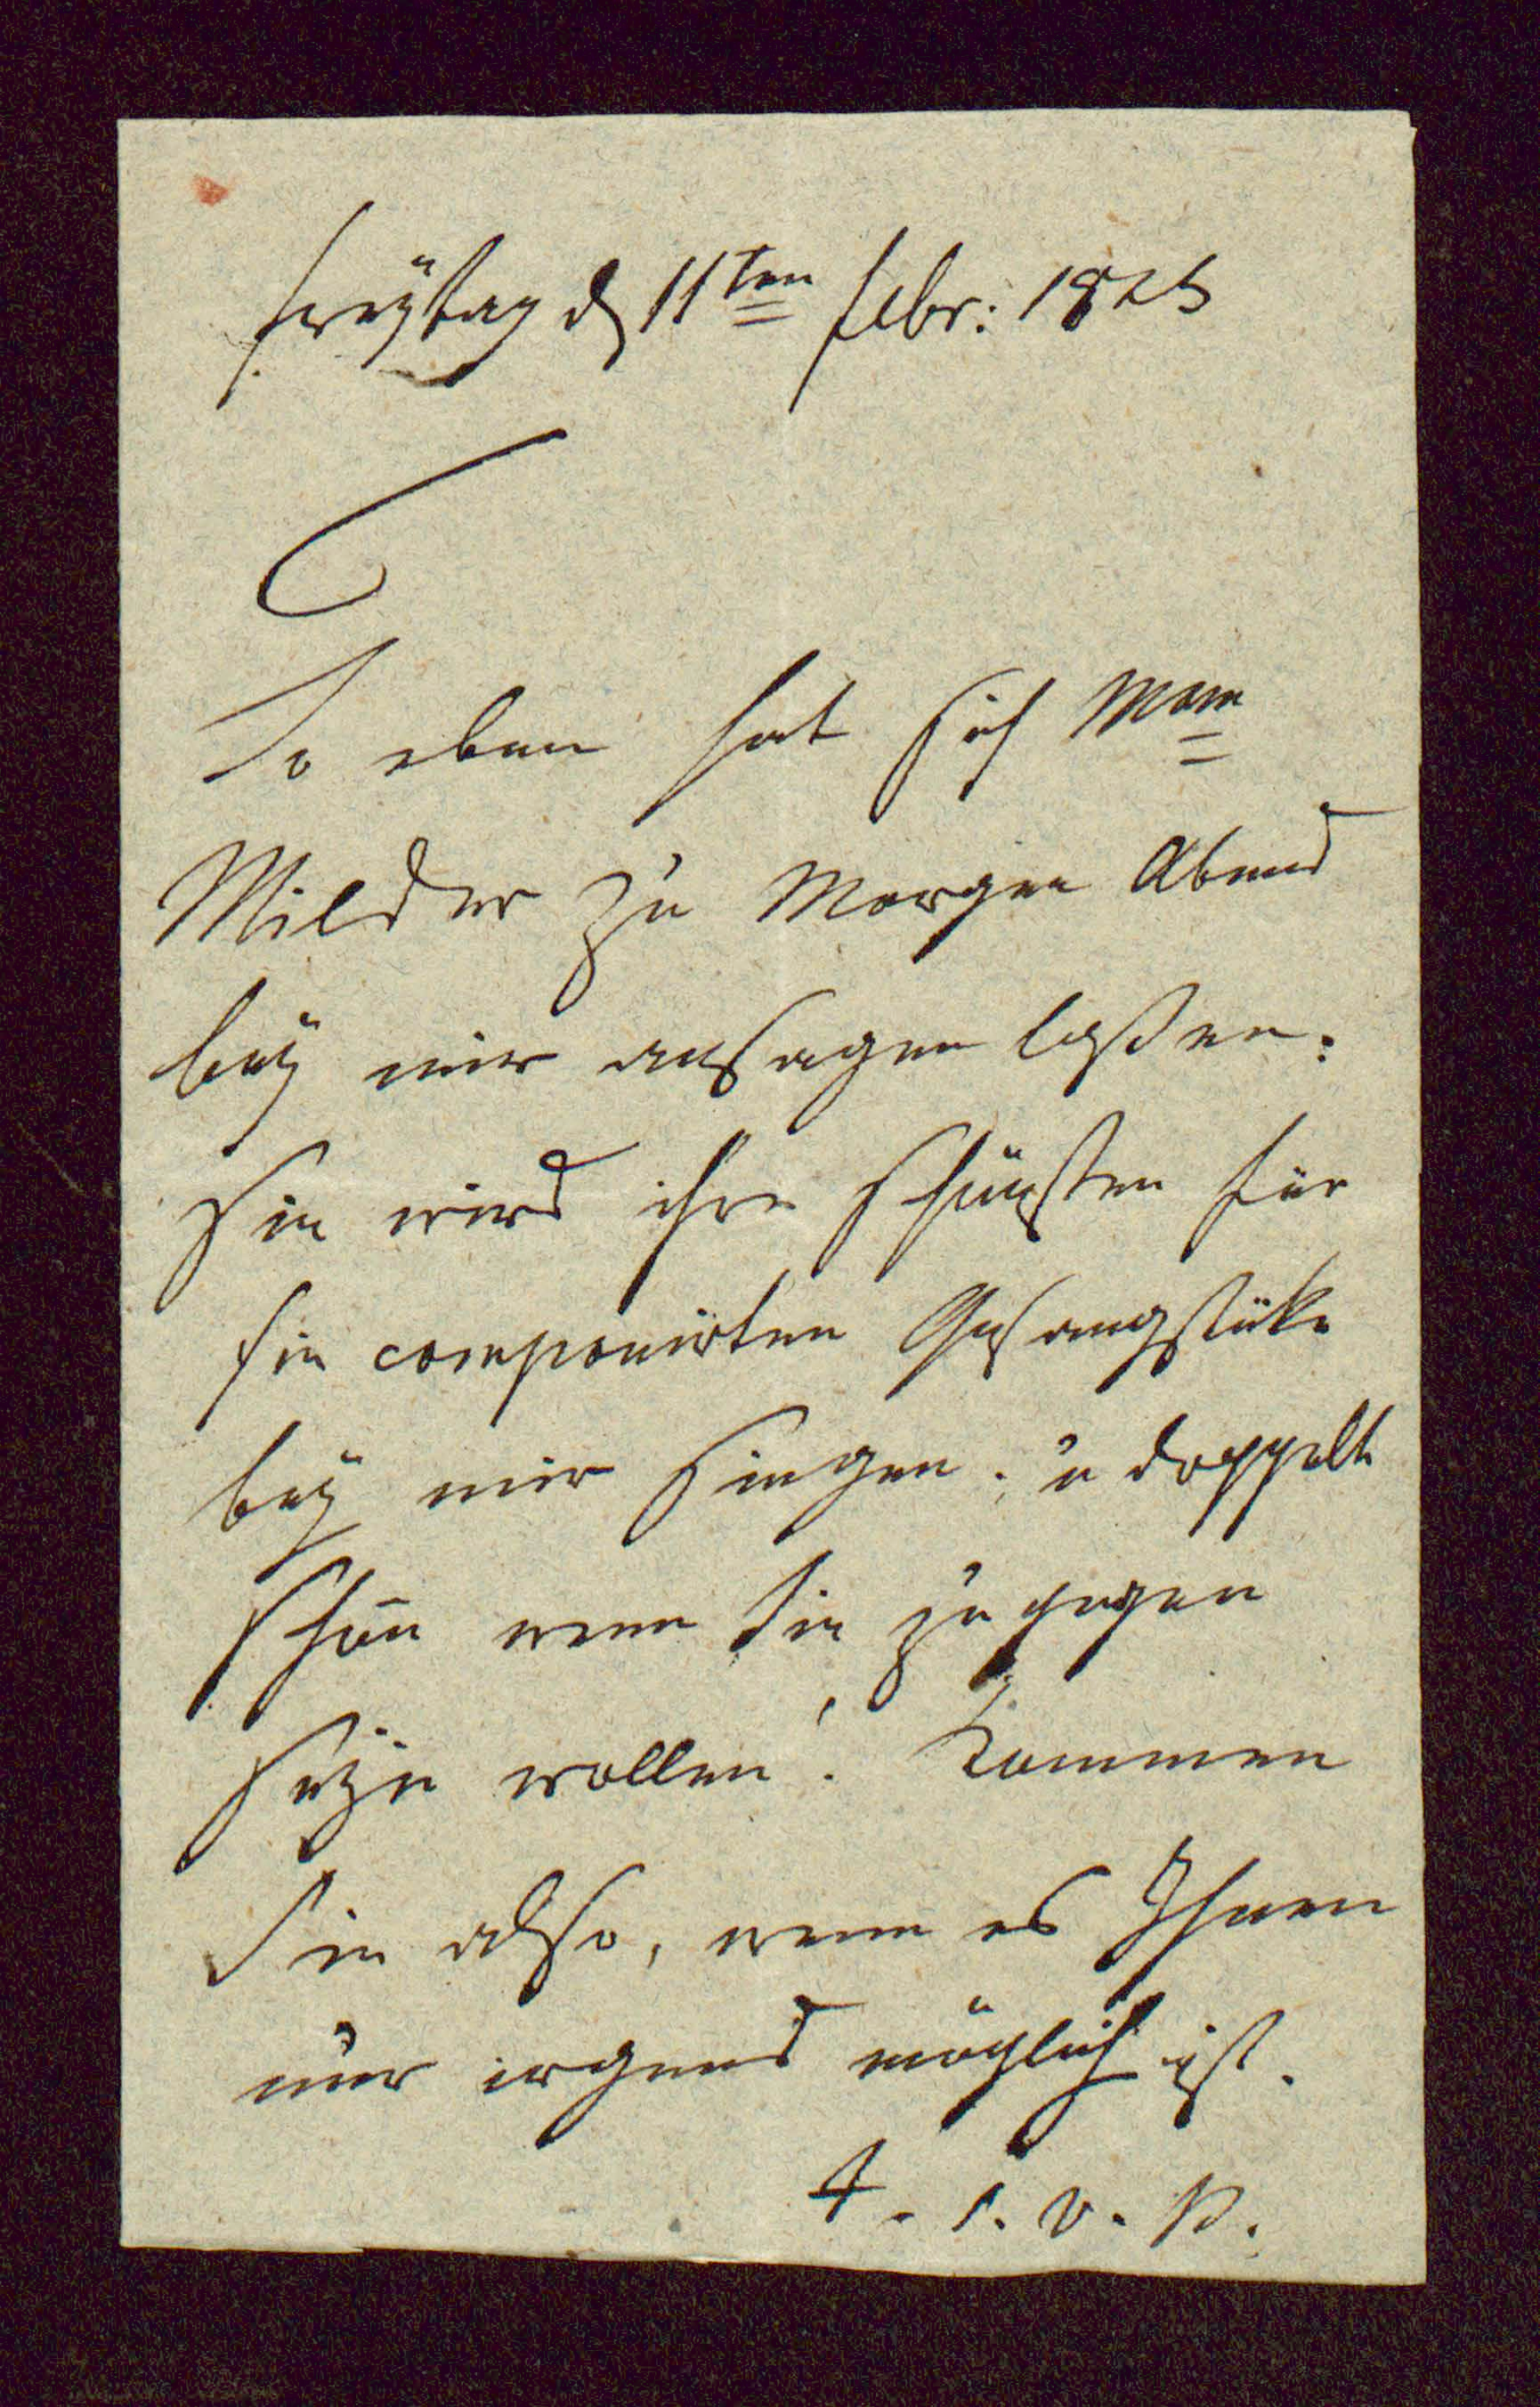 Freÿtag d 11ten Febr: 1825
So eben hat sich Mam
Milder zu Morgen Abend
beÿ mir ansagen laßen:
Sie wird ihre schönsten für
sie componirten Gesangstüke
beÿ mir singen; u doppelt
schön wenn Sie zugegen
seÿn wollen! Kommen
Sie also, wenn es Ihnen
nur irgend möglich ist.
F. v. V.